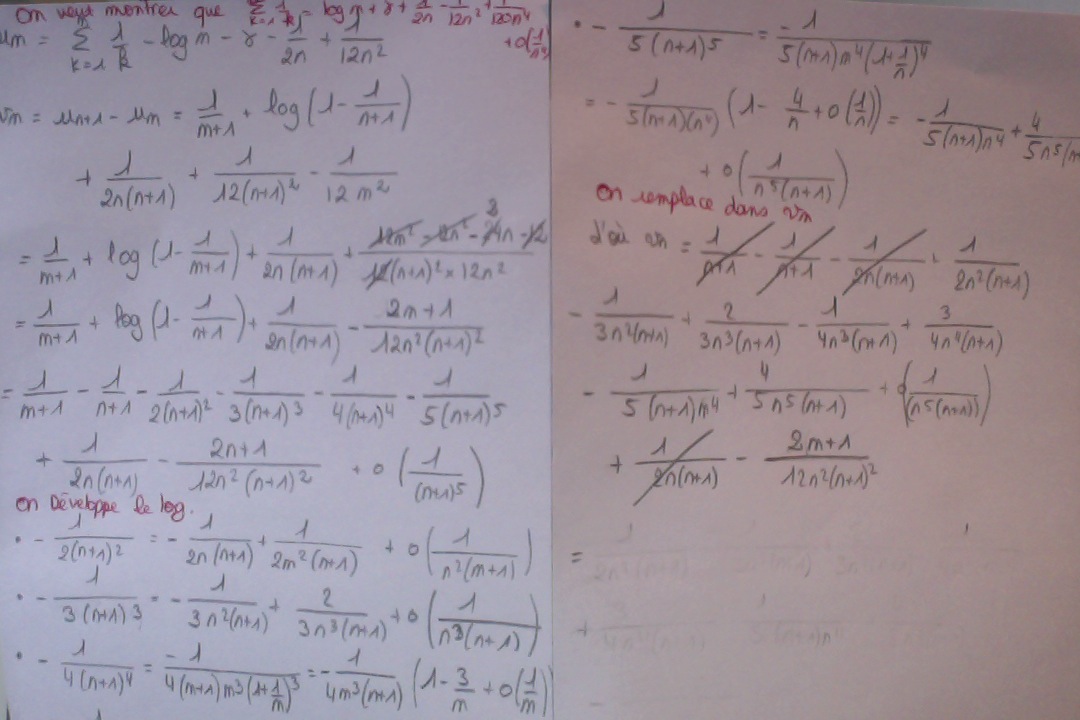 On veut montrer que \sum_{k=1}^{n} \frac{1}{k} = log n + γ + \frac{1}{2n} - \frac{1}{12n^2} + \frac{1}{120n^4} + o(\frac{1}{n^4})
u_n = \sum_{k=1} \frac{1}{k} - log n - γ - \frac{1}{2n} + \frac{1}{12n^2}
v_n = u_{n+1} - u_n = \frac{1}{n+1} + log(1 - \frac{1}{n+1})
+ \frac{1}{2n(n+1)} + \frac{1}{12(n+1)^2} - \frac{1}{12n^2}
= \frac{1}{n+1} + log(1 - \frac{1}{n+1}) + \frac{1}{2n(n+1)} + \frac{12n^2 - 12n^2 - 24n - 12}{12(n+1)^2 × 12n^2}
= \frac{1}{n+1} + log(1 - \frac{1}{n+1}) + \frac{1}{2n(n+1)} - \frac{2n+1}{12n^2(n+1)^2}
= \frac{1}{n+1} - \frac{1}{n+1} - \frac{1}{2(n+1)^2} - \frac{1}{3(n+1)^3} - \frac{1}{4(n+1)^4} - \frac{1}{5(n+1)^5}
+ \frac{1}{2n(n+1)} - \frac{2n+1}{12n^2(n+1)^2} + o(\frac{1}{(n+1)^5})
On Développe le log.
• - \frac{1}{2(n+1)^2} = - \frac{1}{2n(n+1)} + \frac{1}{2n^2(n+1)} + o(\frac{1}{n^2(n+1)})
• - \frac{1}{3(n+1)^3} = - \frac{1}{3n^2(n+1)} + \frac{2}{3n^3(n+1)} + o(\frac{1}{n^3(n+1)})
• - \frac{1}{4(n+1)^4} = \frac{-1}{4(n+1)n^3(1+\frac{1}{n})^3} = - \frac{1}{4n^3(n+1)} (1 - \frac{3}{n} + o(\frac{1}{n})
• - \frac{1}{5(n+1)^5} = \frac{-1}{5(n+1)n^4(1+\frac{1}{n})^4}
= - \frac{1}{5(n+1)(n^4)} (1 - \frac{4}{n} + o(\frac{1}{n})) = - \frac{1}{5(n+1)n^4} + \frac{4}{5n^5(n+
+ o(\frac{1}{n^5(n+1)})
On remplace dans vn
d'où vn = \frac{1}{n+1} - \frac{1}{n+1} - \frac{1}{2n(n+1)} + \frac{1}{2n^2(n+1)}
- \frac{1}{3n^2(n+1)} + \frac{2}{3n^3(n+1)} - \frac{1}{4n^3(n+1)} + \frac{3}{4n^4(n+1)}
- \frac{1}{5(n+1)n^4} + \frac{4}{5n^5(n+1)} + o(\frac{1}{n^5(n+1)})
+ \frac{1}{2n(n+1)} - \frac{2n+1}{12n^2(n+1)^2}
=